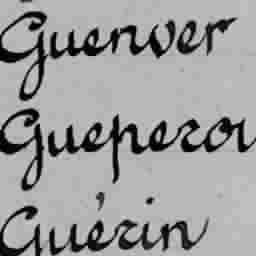 Guenver
Gueperou
Guérin